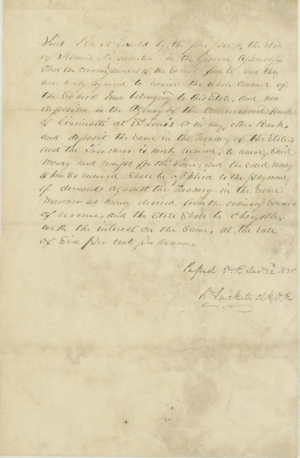 Sect 1 Be it enacted by the people of the State
of Illinois represented in the General Assembly
That the Commissioners of the School fund be and they
are hereby required to receive the whole amount of
the School fund belonging to this State, and now
deposited in the Agency of the Commercial Bank
of Cincinnatti at St Louis or in any other Bank,
and deposit the same in the Treasury of the State
and the Treasurer is hereby required to receive said
money and receipt for the same, and the said money
when so received shall be applied to the payment
of demands against the Treasury in the same
manner as money derived from the ordinary sources
of revenue, and the State shall be chargeable
with the interest on the same, at the rate
of Six per cent per annum.
Passed H. R. 1835